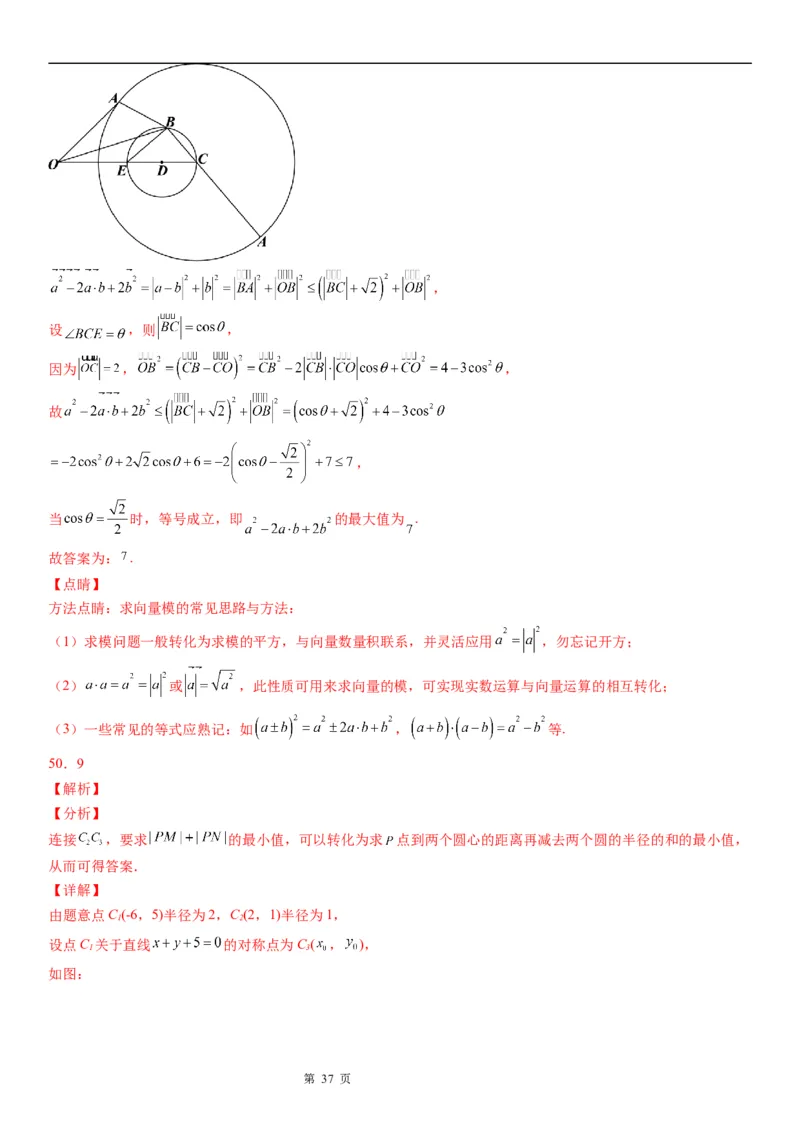 A
B
O
E
D
C
A
a² −2a·b+2b² = |a−b|² + |b|² = |BA|² + |OB|² ≤ (|BC| + √2)² + |OB|² ，
设∠BCE=θ，则|BC| = cosθ，
因为|OC|=2，OB² = (CB−CO)² = CB² −2|CB|·|CO|cosθ+CO² = 4−3cos²θ，
故a² −2a·b+2b² ≤ (|BC| + √2)² + |OB|² = (cosθ+√2)² +4−3cos²θ
= −2cos²θ+2√2cosθ+6 = −2(cosθ− √2/2)² +7≤7，
当cosθ= √2/2 时，等号成立，即a² −2a·b+2b²的最大值为7.
故答案为：7.
【点睛】
方法点睛：求向量模的常见思路与方法：
（1）求模问题一般转化为求模的平方，与向量数量积联系，并灵活应用a² = |a|²，勿忘记开方；
（2）a·a=a² = |a|²或|a| = √a²，此性质可用来求向量的模，可实现实数运算与向量运算的相互转化；
（3）一些常见的等式应熟记：如(a±b)² = a² ±2a·b+b²，(a+b)·(a−b) = a² −b²等.
50．9
【解析】
【分析】
连接C₂C₃，要求|PM|+|PN|的最小值，可以转化为求P点到两个圆心的距离再减去两个圆的半径的和的最小值，
从而可得答案．
【详解】
由题意点C₁(-6，5)半径为2，C₂(2，1)半径为1，
设点C₁关于直线x+y+5=0的对称点为C₃(x₀，y₀)，
如图：
第 37 页